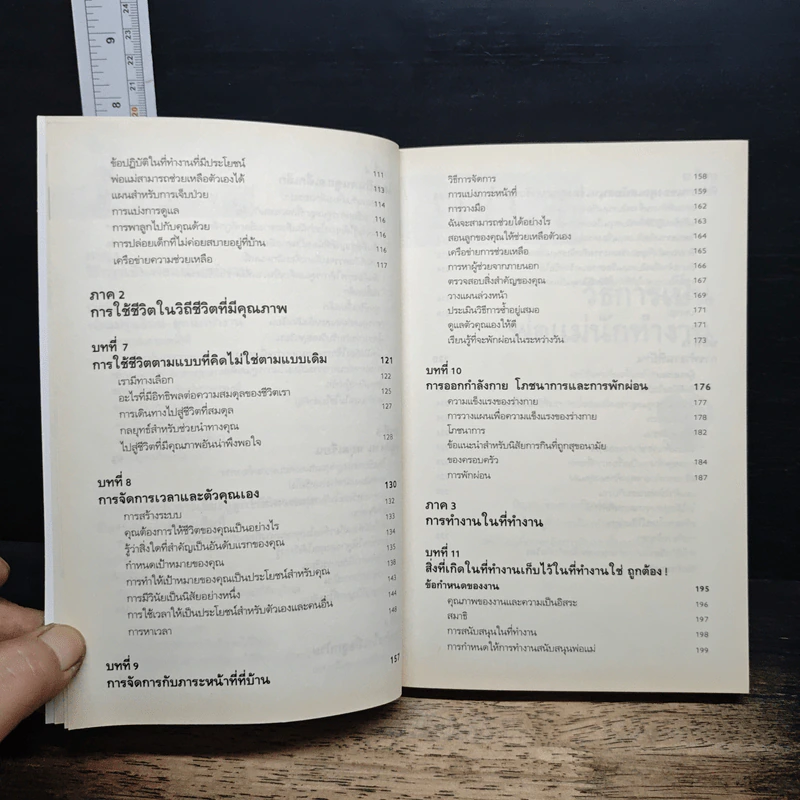 24
9
23
22
21
8
20
ข้อปฏิบัติในที่ทำงานที่มีประโยชน์ 111
พ่อแม่สามารถช่วยเหลือตัวเองได้ 113
แผนสำหรับการเจ็บป่วย 114
การแบ่งการดูแล 116
การพาลูกไปกับคุณด้วย 116
การปล่อยเด็กที่ไม่ค่อยสบายอยู่ที่บ้าน 116
เครือข่ายความช่วยเหลือ 117
ภาค 2
การใช้ชีวิตในวิถีชีวิตที่มีคุณภาพ
บทที่ 7
การใช้ชีวิตตามแบบที่คิดไม่ใช่ตามแบบเดิม 121
เรามีทางเลือก 122
อะไรที่มีอิทธิพลต่อความสมดุลของชีวิตเรา 125
การเดินทางไปสู่ชีวิตที่สมดุล 127
กลยุทธ์สำหรับช่วยนำทางคุณ
ไปสู่ชีวิตที่มีคุณภาพอันน่าพึงพอใจ 128
บทที่ 8
การจัดการเวลาและตัวคุณเอง 130
การสร้างระบบ 132
คุณต้องการให้ชีวิตของคุณเป็นอย่างไร 133
รู้ว่าสิ่งใดที่สำคัญเป็นอันดับแรกของคุณ 134
กำหนดเป้าหมายของคุณ 135
การทำให้เป้าหมายของคุณเป็นประโยชน์สำหรับคุณ 138
การมีวินัยเป็นนิสัยอย่างหนึ่ง 143
การใช้เวลาให้เป็นประโยชน์สำหรับตัวเองและคนอื่น 144
การหาเวลา 148
บทที่ 9
การจัดการกับภาระหน้าที่ที่บ้าน 157
วิธีการจัดการ 158
การแบ่งภาระหน้าที่ 159
การวางมือ 162
ฉันจะสามารถช่วยได้อย่างไร 163
สอนลูกของคุณให้ช่วยเหลือตัวเอง 164
เครือข่ายการช่วยเหลือ 165
การหาผู้ช่วยจากภายนอก 166
ตรวจสอบสิ่งสำคัญของคุณ 167
วางแผนล่วงหน้า 169
ประเมินวิธีการซ้ำอยู่เสมอ 171
ดูแลตัวคุณเองให้ดี 171
เรียนรู้ที่จะพักผ่อนในระหว่างวัน 173
บทที่ 10
การออกกำลังกาย โภชนาการและการพักผ่อน 176
ความแข็งแรงของร่างกาย 177
การวางแผนเพื่อความแข็งแรงของร่างกาย 178
โภชนาการ 182
ข้อแนะนำสำหรับนิสัยการกินที่ถูกสุขอนามัย
ของครอบครัว 184
การพักผ่อน 187
ภาค 3
การทำงานในที่ทำงาน
บทที่ 11
สิ่งที่เกิดในที่ทำงานเก็บไว้ในที่ทำงานใช่ ถูกต้อง !
ข้อกำหนดของงาน 195
คุณภาพของงานและความเป็นอิสระ 196
สมาธิ 197
การสนับสนุนในที่ทำงาน 198
การกำหนดให้การทำงานสนับสนุนพ่อแม่ 199